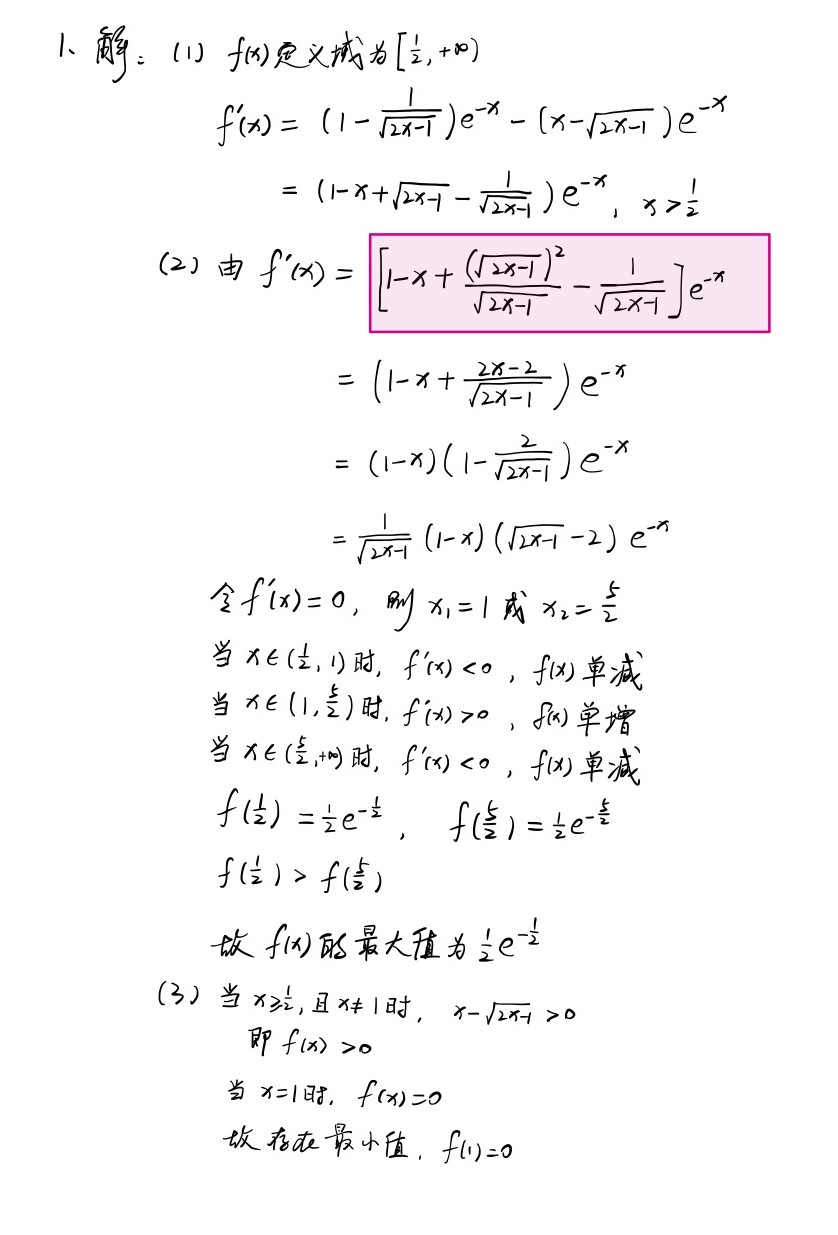 1、解：（1）f(x)定义域为[1/2, +∞)
f′(x) = (1 - 1/√(2x-1))e^(-x) - (x-√(2x-1))e^(-x)
= (1-x+√(2x-1) - 1/√(2x-1))e^(-x), x > 1/2
（2）由 f′(x) = [1-x + (√(2x-1))²/√(2x-1) - 1/√(2x-1)]e^(-x)
= (1-x + (2x-2)/√(2x-1))e^(-x)
= (1-x)(1 - 2/√(2x-1))e^(-x)
= 1/√(2x-1) (1-x)(√(2x-1) - 2)e^(-x)
令 f′(x)=0, 则 x₁=1 或 x₂=5/2
当 x∈(1/2, 1)时, f′(x)<0, f(x)单减
当 x∈(1, 5/2)时, f′(x)>0, f(x)单增
当 x∈(5/2, +∞)时, f′(x)<0, f(x)单减
f(1/2) = 1/2 e^(-1/2), f(5/2) = 1/2 e^(-5/2)
f(1/2) > f(5/2)
故 f(x)的最大值为 1/2 e^(-1/2)
（3）当 x≥1/2, 且 x≠1时, x-√(2x-1) >0
即 f(x) >0
当 x=1时, f(x)=0
故存在最小值, f(1)=0